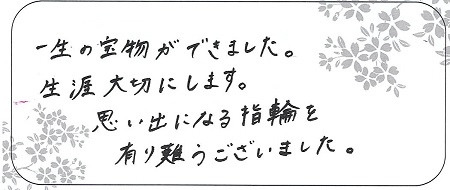 一生の宝物ができました。
生涯大切にします。
思い出になる指輪を
有り難うございました。